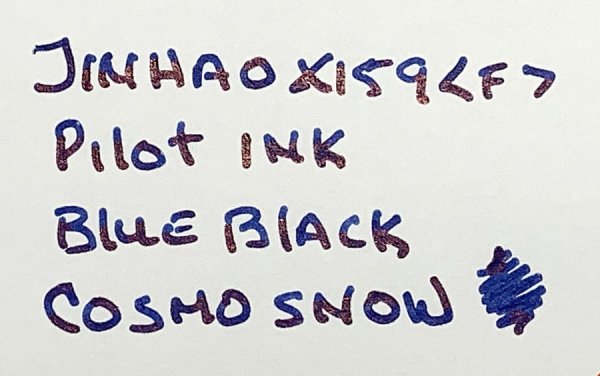 JINHAO X159 <F>
Pilot INK
BLUE BLACK
COSMO SNOW